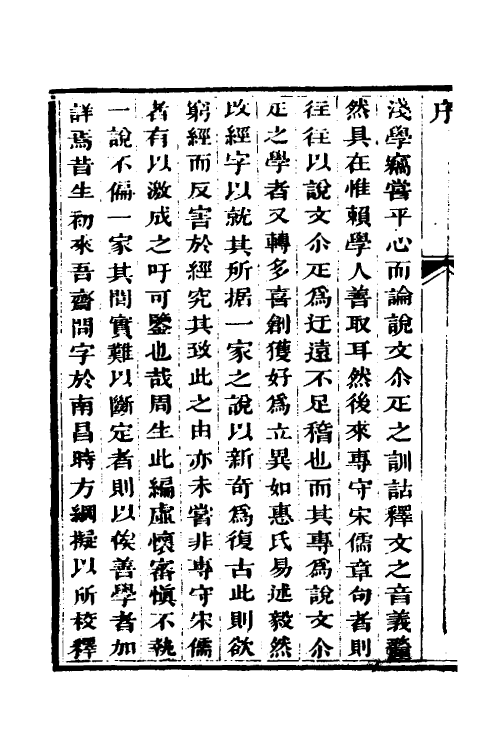 序
淺學竊嘗平心而論說文尒疋之訓詁釋文之音義𨤲
然具在惟賴學人善取耳然後來專守宋儒章句者則
往往以說文尒疋爲迂遠不足稽也而其專爲說文尒
疋之學者又轉多喜創獲好爲立異如惠氏易述毅然
改經字以就其所据一家之說以新奇爲復古此則欲
窮經而反害於經究其致此之由亦未嘗非專守宋儒
者有以激成之吁可鑒也哉周生此編虛懷審愼不執
一說不偏一家其閒實難以斷定者則以俟善學者加
詳焉昔生初來吾齋問字於南昌時方綱擬以所校釋